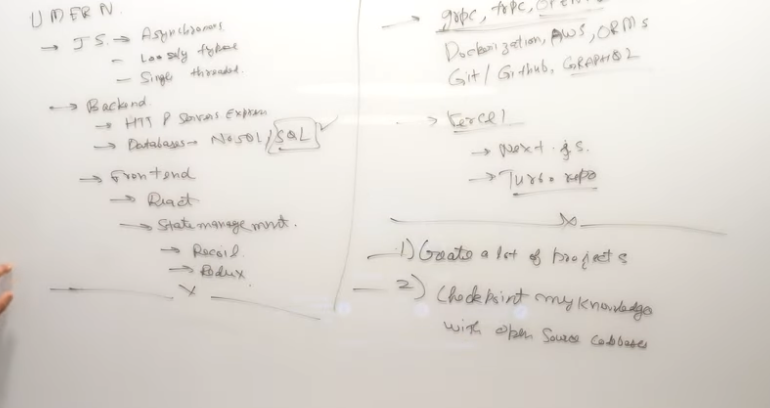 UMERN.
→ JS. → Asynchronous
- Loosely typed
- Single threaded.
→ Backend.
→ HTTP Servers Express
→ Databases - NoSQL / SQL
→ Frontend
→ React
→ State management.
→ Recoil
→ Redux
→ grpc, trpc,
Dockerization, AWS, ORMs
Git / Github, GRAPHQL
→ Vercel
→ Next.js.
→ Turbo repo
1) Create a lot of projects
2) Checkpoint my knowledge
with open source codebases